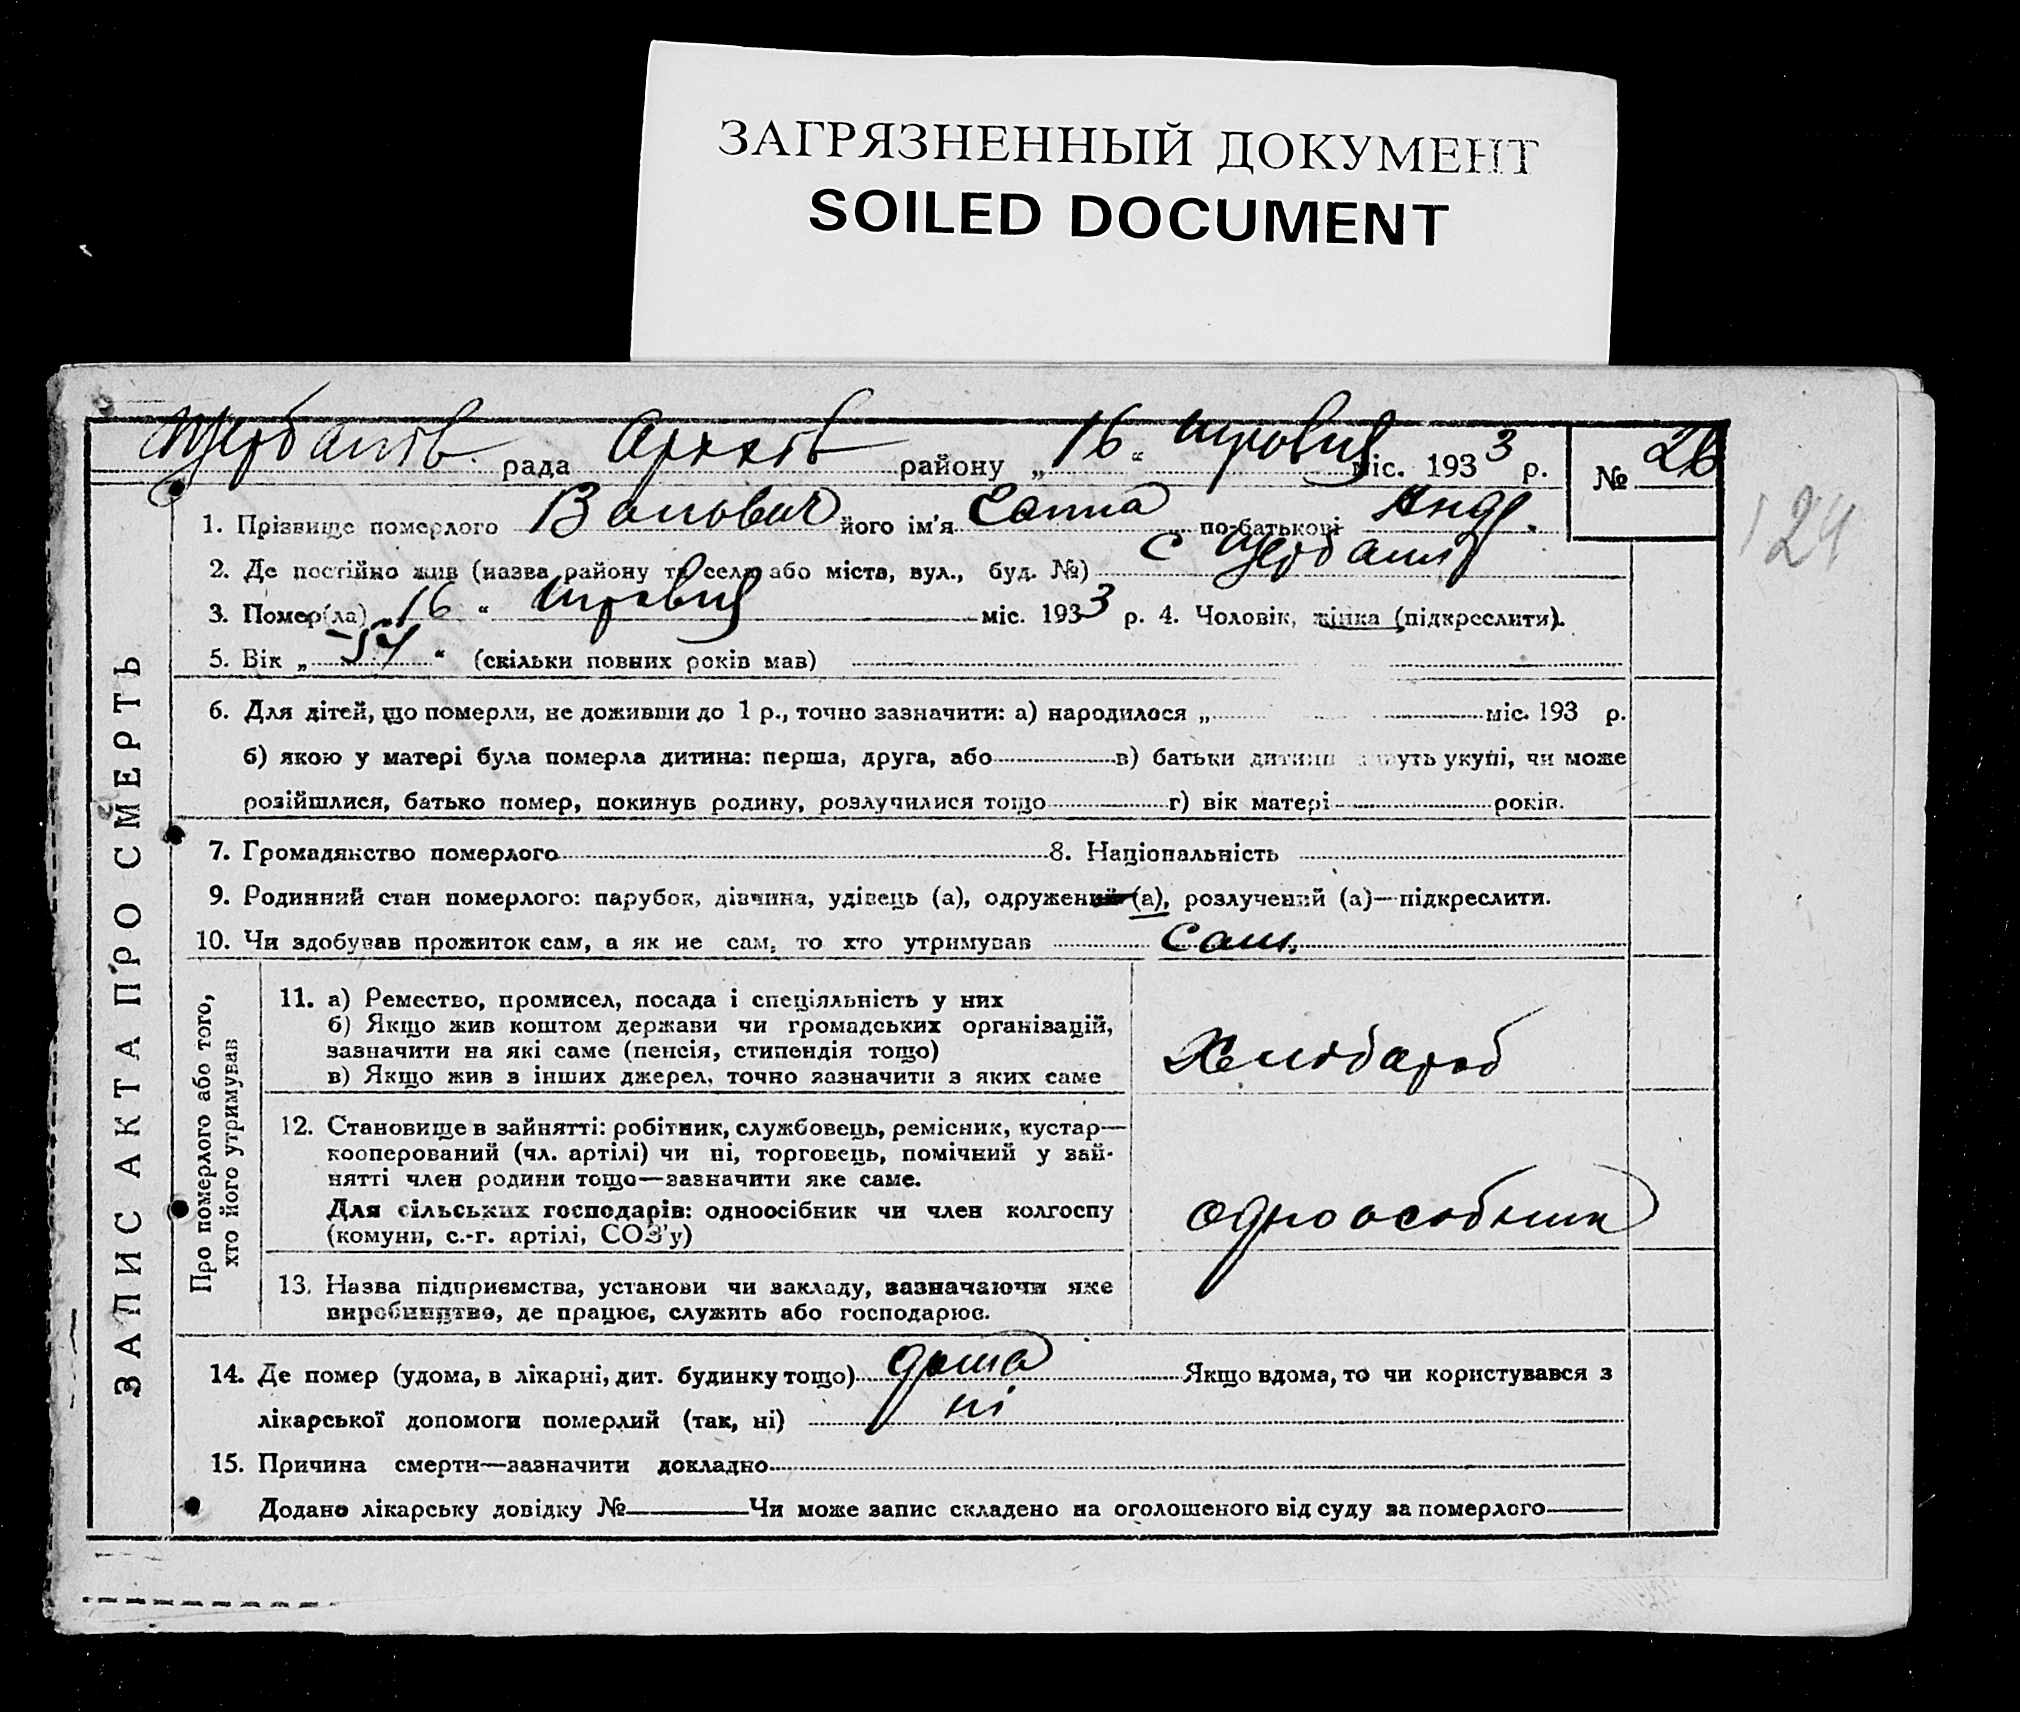 ЗАГРЯЗНЕННЫЙ ДОКУМЕНТ
SOILED DOCUMENT
рада району „16“ травня міс. 1933 р. № 26
124
1. Прізвище померлого його ім'я по-батькові Андр.
2. Де постійно жив (назва району та села або міста, вул., буд. №) с
3. Помер(ла) 16 “ травня міс. 1933 р. 4. Чоловік, жінка (підкреслити).
5. Вік „ 54 “ (скільки повних років мав)
6. Для дітей, що померли, не доживши до 1 р., точно зазначити: а) народилося „ міс. 193 р.
б) якою у матері була померла дитина: перша, друга, або в) батьки дитини живуть укупі, чи може
розійшлися, батько помер, покинув родину, розлучилися тощо г) вік матері років.
7. Громадянство померлого 8. Національність
9. Родинний стан померлого: парубок, дівчина, удівець (а), одружений (а), розлучений (а)—підкреслити.
10. Чи здобував прожиток сам, а як не сам, то хто утримував сам.
ЗАПИС АКТА ПРО СМЕРТЬ
Про померлого або того,
хто його утримував
11. а) Ремество, промисел, посада і спеціяльність у них
б) Якщо жив коштом держави чи громадських організацій,
зазначити на які саме (пенсія, стипендія тощо)
в) Якщо жив з інших джерел, точно зазначити з яких саме
Хлібороб
12. Становище в зайнятті: робітник, службовець, ремісник, кустар—
кооперований (чл. артілі) чи ні, торговець, помічний у зай-
нятті член родини тощо—зазначити яке саме.
Для сільських господарів: одноосібник чи член колгоспу
(комуни, с.-г. артілі, СОЗ'у)
одноособник
13. Назва підприємства, установи чи закладу, зазначаючи яке
виробництво, де працює, служить або господарює.
14. Де помер (удома, в лікарні, дит. будинку тощо) дома Якщо вдома, то чи користувався з
лікарської допомоги померлий (так, ні) ні
15. Причина смерти—зазначити докладно
Додано лікарську довідку № Чи може запис складено на оголошеного від суду за померлого